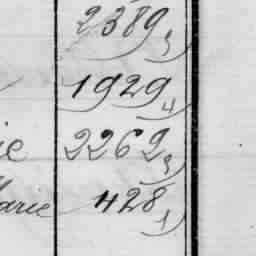 2389 3)
1929 4)
ie 2262 3)
Marie 428 1)